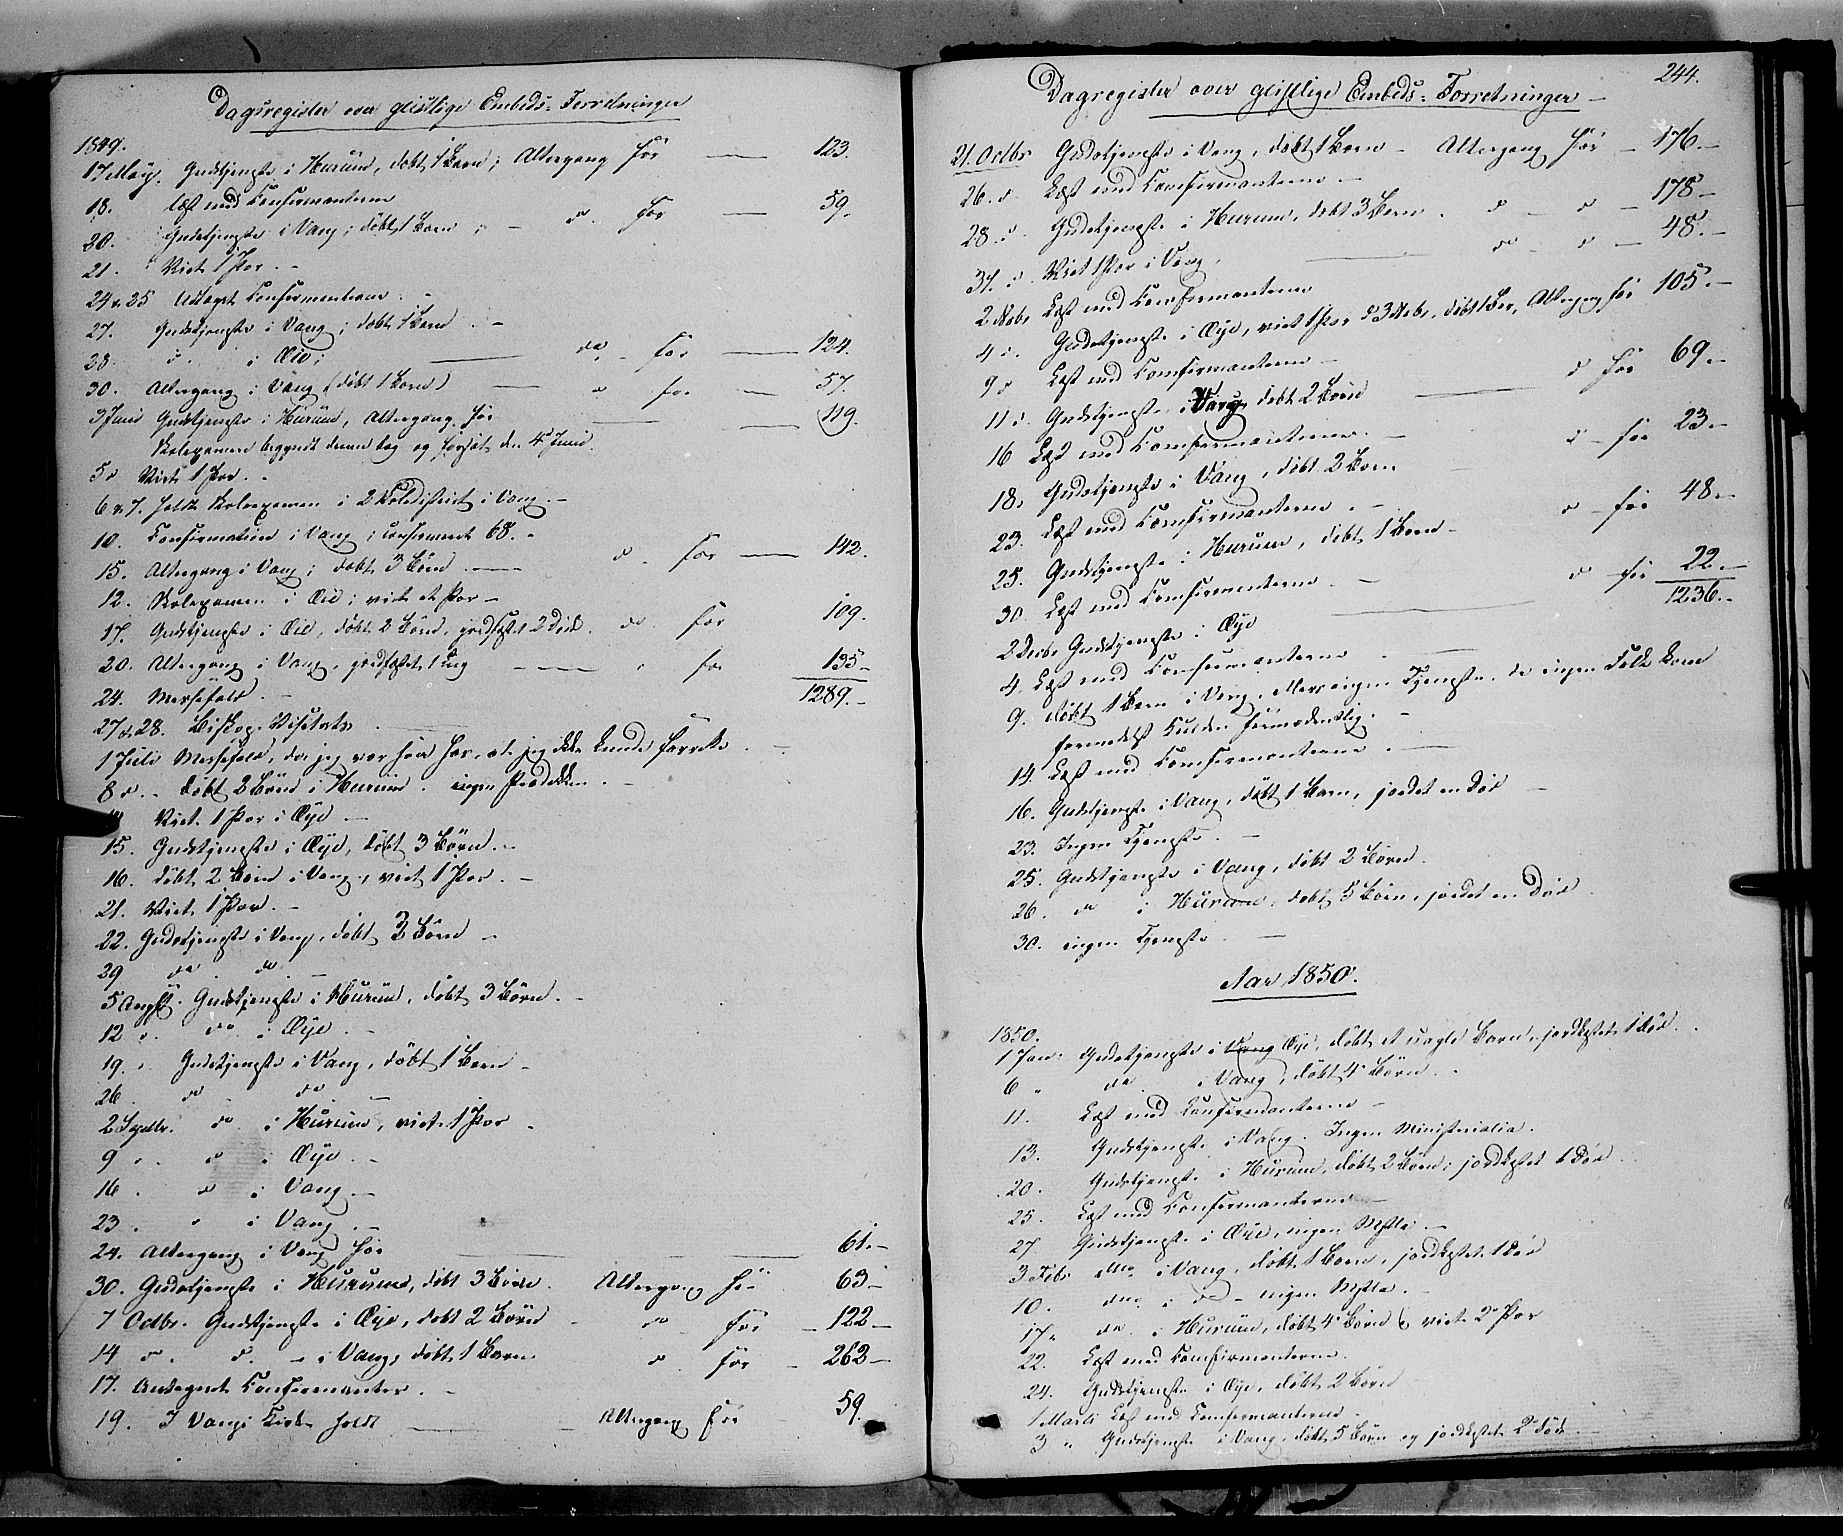 Dagsregister over geistlige Embeds-Forretninger
1849.
17 May. Gudstjeneste i Hurum, døbt 1 Barn; Altergang for — 123.
18. læst med Confirmanterne
20. Gudstjeneste i Vang; døbt 1 Barn; — do. for — 59.
21. Viet 1 Par. -
24 & 25 Udlagt Confirmanterne
27. Gudstjeneste i Vang; døbt 1 Barn. -
28. do i Øie; — do. for — 124.
30. Altergang i Vang (døbt 1 Barn) — " for — 57.
3 Juni Gudstjeneste i Hurum, Altergang for — 119.
Skolexamen begyndt denne dag og fortsat den 4 Juni.
5 d Viet 1 Par. -
6 & 7. holdt Skolexamen i 2 Skoldistrict i Vang. -
10. Confirmation i Vang; confirmeret 68. -
15. Altergang i Vang; døbt 3 Børn. — d. for — 142.
12. Skolexamen i Øie; viet et Par —
17. Gudstjeneste i Øie, døbt 2 Børn, jordfæstet 2 Døde. do. for 109.
20. Altergang i Vang, jordfæstet 1 Lig — for 135 —
24. Messefald. - 1289. -
27 & 28. Biskop-Visitats
1 Juli Messefald, da jeg var saa hæs, at jeg ikke kunde forrette. -
8 d. - døbt 2 Børn i Hurum. ingen Prædiken. -
Viet 1 Par i Øye —
15. Gudstjeneste i Øye, døbt 3 Børn. -
16. døbt 2 Børn i Vang, viet 1 Par. -
21. Viet 1 Par. -
22. Gudstjeneste i Vang, døbt 3 Børn —
29 do. do. —
5 Augst. Gudstjeneste i Hurum, døbt 3 Børn. -
12 " do i Øye. -
19. " Gudstjeneste i Vang, døbt 1 Barn -
26 do do -
2 Septbr. do. i Hurum, viet 1 Par -
9 " d i Øye. -
16 . do i Vang. -
23 . " i Vang. -
24. Altergang i Vang for — 61. -
30. Gudstjeneste i Hurum, døbt 3 Børn. Altergang for 63 —
7 Octbr. Gudstjeneste i Øye, døbt 2 Børn — do for — 122 —
14 d. d. — i Vang, døbt 1 Barn d. for — 263 —
17. Antegnet Confirmanter. -
19. I Vangs Kirke holdt — Altergang for 59.
244.
Dagregister over geistlige Embeds-Forretninger —
21. Octbr Gudstjeneste i Vang, døbt 1 Barn - Altergang for — 176. —
26. d Læst med Confirmanterne —
28. d. Gudstjeneste i Hurum, døbt 3 Børn. d — d — 178 —
31. d. Viet 1 Par i Vang. do — d — 48. —
2 Novbr Læst med Confirmanterne
4 d. Gudstjeneste i Øye, viet 1 Par d 3 Novbr, døbt 1 Barn, Altergang for 105. —
9 d Læst med Confirmanterne —
11 d. Gudstjeneste i Vang døbt 2 Børn — d for 69. -
16 Læst med Confirmanterne. -
18. Gudstjeneste i Vang, døbt 2 Børn d — for 23. -
23. Læst med Confirmanterne. -
25. Gudstjeneste i Hurum, døbt 1 Barn — d — for 48. -
30. Læst med Confirmanterne. —
2 Decbr Gudstjeneste i Øye — d — for 22. —
1236. -
4. Læst med Confirmanterne. —
9. døbt 1 Barn i Vang, ellers ingen Tjeneste, da ingen Folk kom
formedelst Kulden formodentlig. -
14. Læst med Confirmanterne. -
16. Gudstjeneste i Vang, døbt 1 Barn, jordet en Død —
23. Ingen Tjeneste. -
25. Gudstjeneste i Vang, døbt 2 Børn.
26. do i Hurum, døbt 5 Børn, jordet en Død.
30. ingen Tjeneste. —
Aar 1850.
1850.
1 Jan. Gudstjeneste i Vang Øye, døbt et uægte Barn, jordfæstet 1 Død. -
6 " do i Vang, døbt 4 Børn. -
11. Læst med Confirmanterne —
13. Gudstjeneste i Vang. Ingen Ministerialia.
20. Gudstjeneste i Hurum, døbt 2 Børn; jordfæstet 1 Død
25. Læst med Confirmanterne —
27. Gudstjeneste i Øye, ingen Mstla. —
3 Febr do. i Vang, døbt 1 Barn, jordfæstet 1 Død
10. do. i do — ingen Mstla. -
17. do. i Hurum, døbt 4 Børn & viet 2 Par
22. Læst med Confirmanterne.
24. Gudstjeneste i Øye, døbt 2 Børn
1 Marts Læst med Confirmanterne
3 " Gudstjeneste i Vang, døbt 5 Børn og jordfæstet 2 Døde.